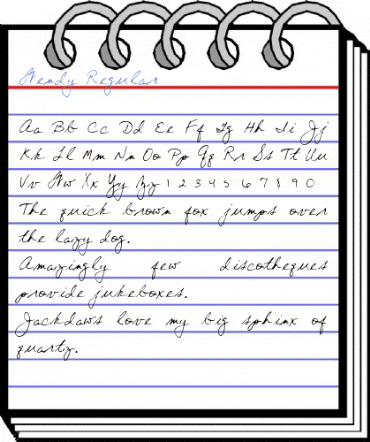 Wendy Regular
Aa Bb Cc Dd Ee Ff Gg Hh Ii Jj
Kk Ll Mm Nn Oo Pp Qq Rr Ss Tt Uu
Vv Ww Xx Yy Zz 1 2 3 4 5 6 7 8 9 0
The quick brown fox jumps over
the lazy dog.
Amazingly few discotheques
provide jukeboxes.
Jackdaws love my big sphinx of
quartz.